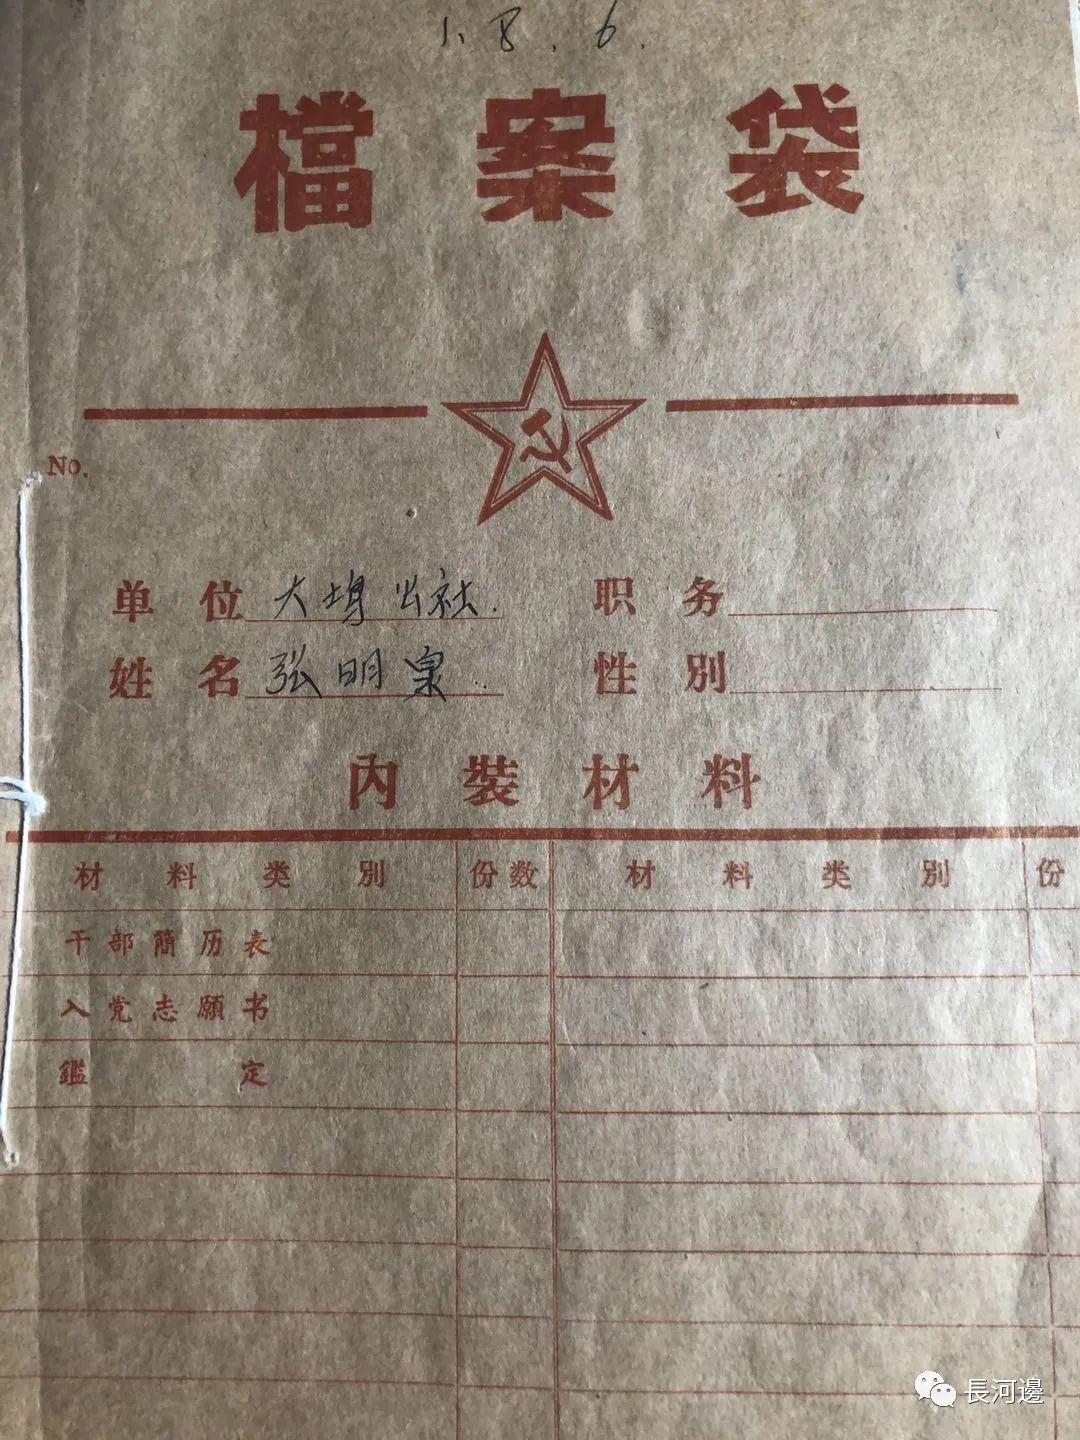 1. 8. 6.
檔案袋
No.
单位 大埠公社. 职务
姓名 张明泉 性别
内裝材料
材料类別 份数 材料类別 份
干部簡历表
入党志願书
鑑定
長河邊